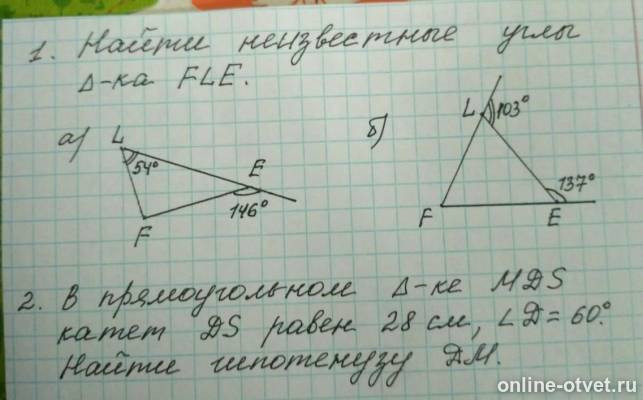 1. Найти неизвестные углы
Δ-ка FLE.
а) L 54° E 146° F
б) L 103° 137° F E
2. В прямоугольном Δ-ке MDS
катет DS равен 28 см, ∠D = 60°.
Найти гипотенузу DM.
online-otvet.ru